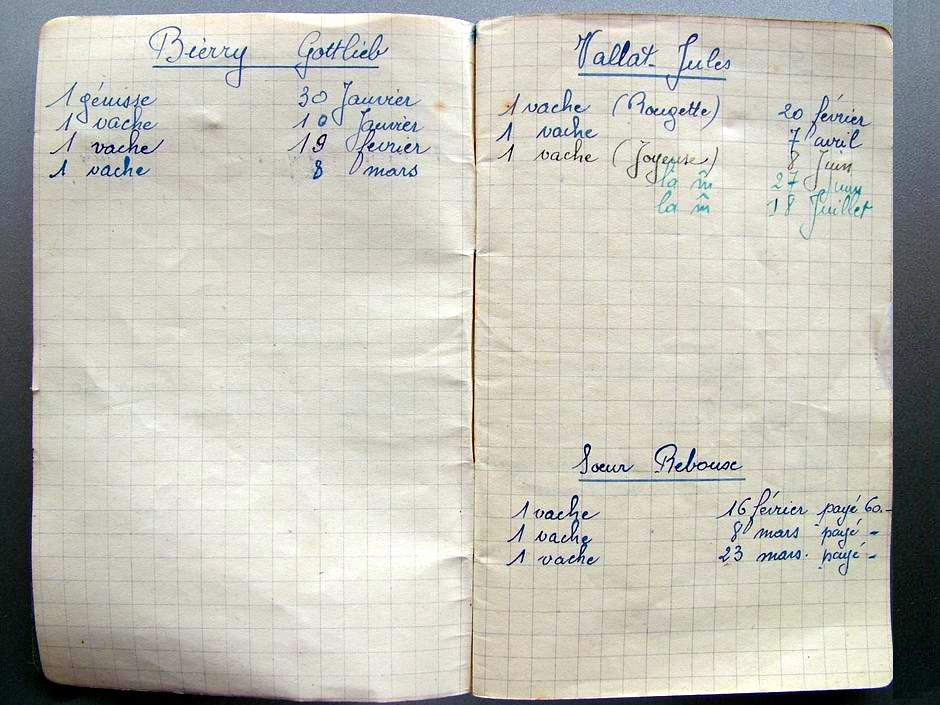 Bierry Gottlieb
1 génisse 30 Janvier
1 vache 10 Janvier
1 vache 19 février
1 vache 8 mars
Vallat Jules
1 vache (Rougette) 20 février
1 vache 7 avril
1 vache (Joyeuse) 8 Juin
la m̂ 27 Juin
la m̂ 18 Juillet
Sœur Rebouse
1 vache 16 février payé 60.-
1 vache 8 mars payé -
1 vache 23 mars. payé -